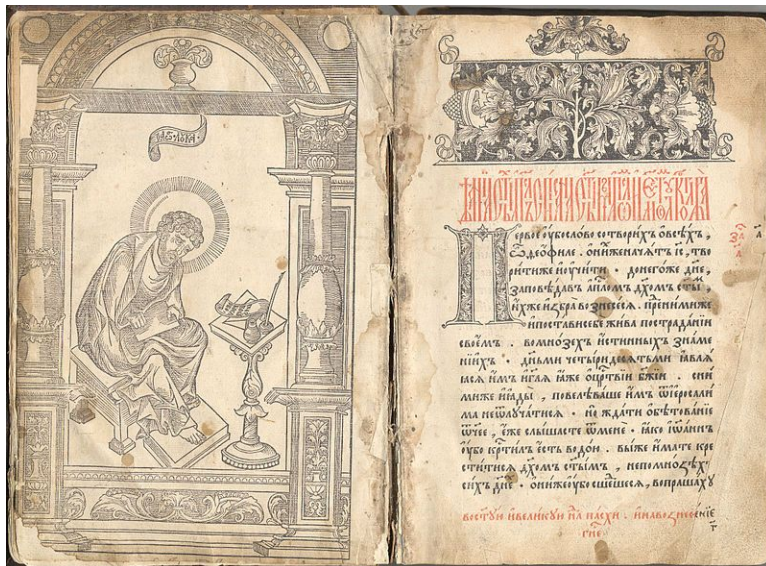 Первое ѹ҆бо слово сотворихъ ѡ҆ всѣхъ ,
ѽ ѳеѻ҆филе . ѡ҆ ниⷯже начѧтъ і҆с҃ , тво
рити же и҆ ѹ҆чити · донегоже дн҃е ,
заповѣдавъ а҆пⷭ҇лѡмъ дх҃омъ ст҃ы
и҆хже и҆збра вознесесѧ . пред ними же
и҆ постави себе жива по страданїи
своемъ . во мнозехъ и҆стинныхъ знаме
нїихъ · дн҃ьми четыридесѧтьми ꙗ҆влѧ
ꙗсѧ и҆мъ и҆ гл҃ѧ ꙗ҆же ѡ҆ црⷭ҇твїи бж҃їи . с ни
миже и҆ ꙗ҆ды , повелѣваше и҆мъ ѿ і҆ерⷭ҇али
ма не ѿлꙋчатисѧ · но ждати ѡ҆бѣтованїе
ѿч҃ее , е҆же слышасте ѿ мене · ꙗ҆ко і҆ѡ҆аннъ
ѹ҆бо крⷭ҇тилъ е҆сть водою . вы же и҆мате кре
ститисѧ дх҃омъ ст҃ымъ , не по мноѕѣхъ
сихъ дн҃еⷯ . ѻ҆ни же ѹ҆бо сшедшесѧ , вопрашахꙋ
в ст҃ꙋю и҆ великꙋю нⷣлѧ пасхи . и҆ на вознесенїе
гⷭ҇не